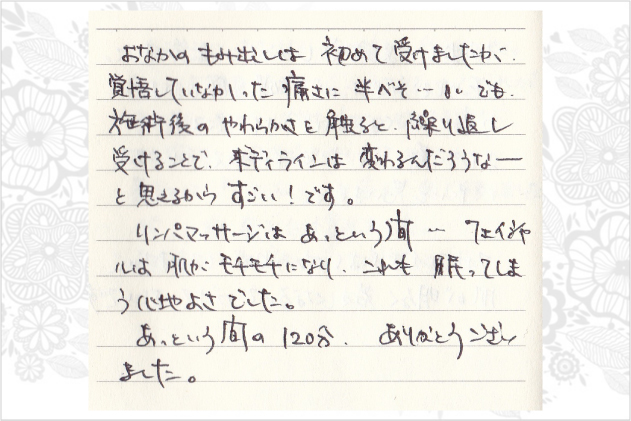 おなかのもみ出しは 初めて受けましたが、
覚悟していなかった痛さに 半べそ… でも、
施術後の やわらかさを 触ると、繰り返し
受けることで、ボディラインは 変わるんだろうなー
と思えるから すごい！です。
リンパマッサージは あっという間 … フェイシャ
ルは 肌が モチモチになり、これも 眠ってしま
う心地よさでした。
あっという間の 120分、 ありがとうござい
ました。